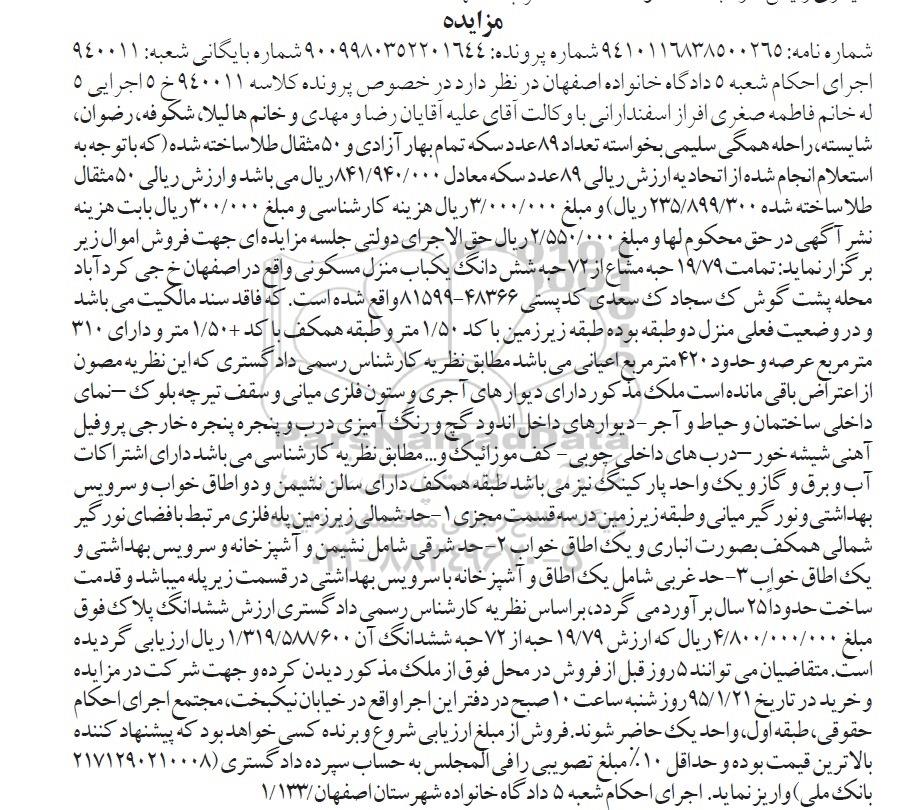 مزایده
شماره نامه: ۹۴۱۰۱۱۶۸۳۸۵۰۰۲۶۵ شماره پرونده: ۹۰۰۹۹۸۰۳۵۲۲۰۱۶۴۴ شماره بایگانی شعبه: ۹۴۰۰۱۱
اجرای احکام شعبه ۵ دادگاه خانواده اصفهان در نظر دارد در خصوص پرونده کلاسه ۹۴۰۰۱۱ خ ۵ اجرایی ۵
له خانم فاطمه صغری افراز اسفندارانی با وکالت آقای علیه آقایان رضا و مهدی و خانم ها لیلا، شکوفه، رضوان،
شایسته، راحله همگی سلیمی بخواسته تعداد ۸۹ عدد سکه تمام بهار آزادی و ۵۰ مثقال طلا ساخته شده (که با توجه به
استعلام انجام شده از اتحادیه ارزش ریالی ۸۹ عدد سکه معادل ۸۴۱/۹۴۰/۰۰۰ ریال می باشد و ارزش ریالی ۵۰ مثقال
طلا ساخته شده ۲۳۵/۸۹۹/۳۰۰ ریال) و مبلغ ۳/۰۰۰/۰۰۰ ریال هزینه کارشناسی و مبلغ ۳۰۰/۰۰۰ ریال بابت هزینه
نشر آگهی در حق محکوم لها و مبلغ ۲/۵۵۰/۰۰۰ ریال حق الاجرای دولتی جلسه مزایده ای جهت فروش اموال زیر
برگزار نماید: تمامت ۱۹/۷۹ حبه مشاع از ۷۲ حبه شش دانگ یکباب منزل مسکونی واقع در اصفهان خ جی کرد آباد
محله پشت گوش ک سجاد ک سعدی کدپستی ۴۸۳۶۶-۸۱۵۹۹ واقع شده است. که فاقد سند مالکیت می باشد
و در وضعیت فعلی منزل دو طبقه بوده طبقه زیرزمین با کد ۱/۵۰ متر و طبقه همکف با کد +۱/۵۰ متر و دارای ۳۱۰
متر مربع عرصه و حدود ۴۲۰ متر مربع اعیانی می باشد مطابق نظریه کارشناس رسمی دادگستری که این نظریه مصون
از اعتراض باقی مانده است ملک مذکور دارای دیوارهای آجری و ستون فلزی میانی و سقف تیرچه بلوک –نمای
داخلی ساختمان و حیاط و آجر -دیوارهای داخل اندود گچ و رنگ آمیزی درب و پنجره پنجره خارجی پروفیل
آهنی شیشه خور –درب های داخلی چوبی- کف موزائیک و... مطابق نظریه کارشناسی می باشد دارای اشتراکات
آب و برق و گاز و یک واحد پارکینگ نیز می باشد طبقه همکف دارای سالن نشیمن و دو اطاق خواب و سرویس
بهداشتی و نورگیر میانی و طبقه زیرزمین در سه قسمت مجزی ۱-حد شمالی زیرزمین پله فلزی مرتبط با فضای نورگیر
شمالی همکف بصورت انباری و یک اطاق خواب ۲-حد شرقی شامل نشیمن و آشپزخانه و سرویس بهداشتی و
یک اطاق خواب ۳-حد غربی شامل یک اطاق و آشپزخانه با سرویس بهداشتی در قسمت زیر پله میباشد و قدمت
ساخت حدودا ۲۵ سال برآورد می گردد، براساس نظریه کارشناس رسمی دادگستری ارزش ششدانگ پلاک فوق
مبلغ ۴/۸۰۰/۰۰۰/۰۰۰ ریال که ارزش ۱۹/۷۹ حبه از ۷۲ حبه ششدانگ آن ۱/۳۱۹/۵۸۸/۶۰۰ ریال ارزیابی گردیده
است. متقاضیان می توانند ۵ روز قبل از فروش در محل فوق از ملک مذکور دیدن کرده و جهت شرکت در مزایده
و خرید در تاریخ ۹۵/۱/۲۱ روز شنبه ساعت ۱۰ صبح در دفتر این اجرا واقع در خیابان نیکبخت، مجتمع اجرای احکام
حقوقی، طبقه اول، واحد یک حاضر شوند. فروش از مبلغ ارزیابی شروع و برنده کسی خواهد بود که پیشنهاد کننده
بالاترین قیمت بوده و حداقل ۱۰٪ مبلغ تصویبی را فی المجلس به حساب سپرده دادگستری (۲۱۷۱۲۹۰۲۱۰۰۰۸
بانک ملی) واریز نماید. اجرای احکام شعبه ۵ دادگاه خانواده شهرستان اصفهان/۱/۱۳۳
ParsNamadData
۰۲۱-۸۸۳۴۹۶۷۰-۵